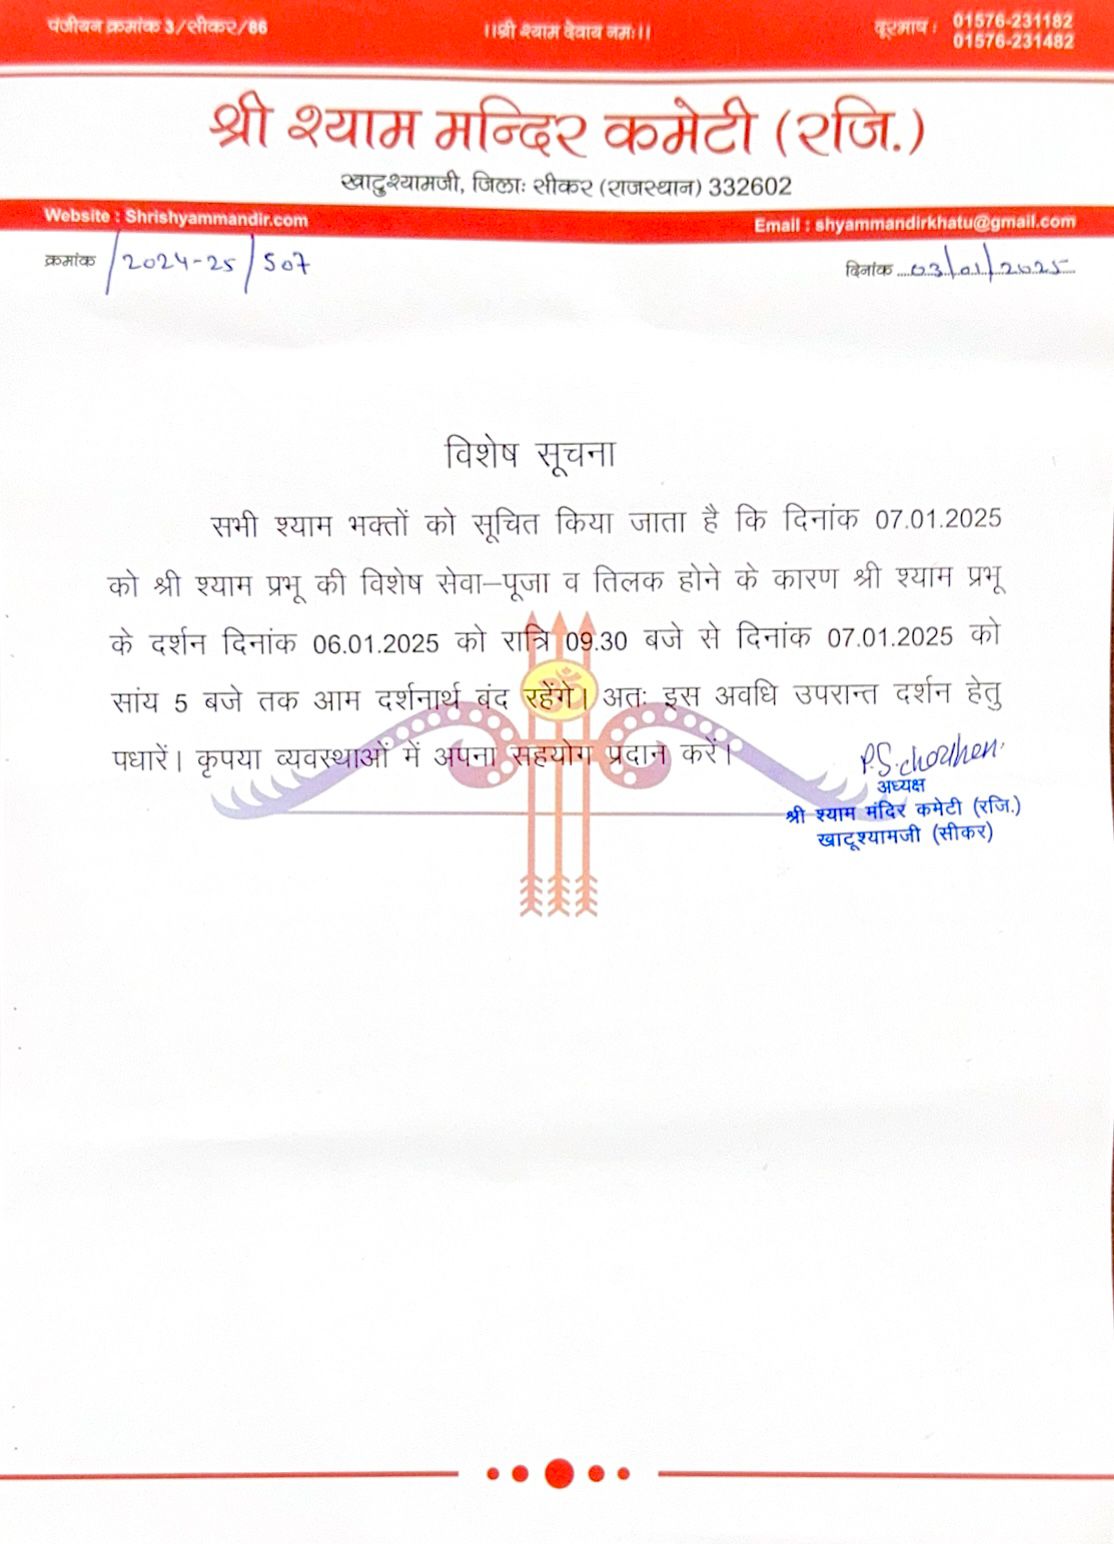 पंजीयन क्रमांक 3/सीकर/86
।।श्री श्याम देवाय नमः।।
दूरभाष : 01576-231182
01576-231482
श्री श्याम मन्दिर कमेटी (रजि.)
खाटुश्यामजी, जिलाः सीकर (राजस्थान) 332602
Website : Shrishyammandir.com
Email : shyammandirkhatu@gmail.com
क्रमांक /2024-25/507
दिनांक 03/01/2025
विशेष सूचना
सभी श्याम भक्तों को सूचित किया जाता है कि दिनांक 07.01.2025
को श्री श्याम प्रभू की विशेष सेवा–पूजा व तिलक होने के कारण श्री श्याम प्रभू
के दर्शन दिनांक 06.01.2025 को रात्रि 09.30 बजे से दिनांक 07.01.2025 को
सांय 5 बजे तक आम दर्शनार्थ बंद रहेंगे। अतः इस अवधि उपरान्त दर्शन हेतु
पधारें। कृपया व्यवस्थाओं में अपना सहयोग प्रदान करें।
अध्यक्ष
श्री श्याम मंदिर कमेटी (रजि.)
खाटूश्यामजी (सीकर)
ॐ